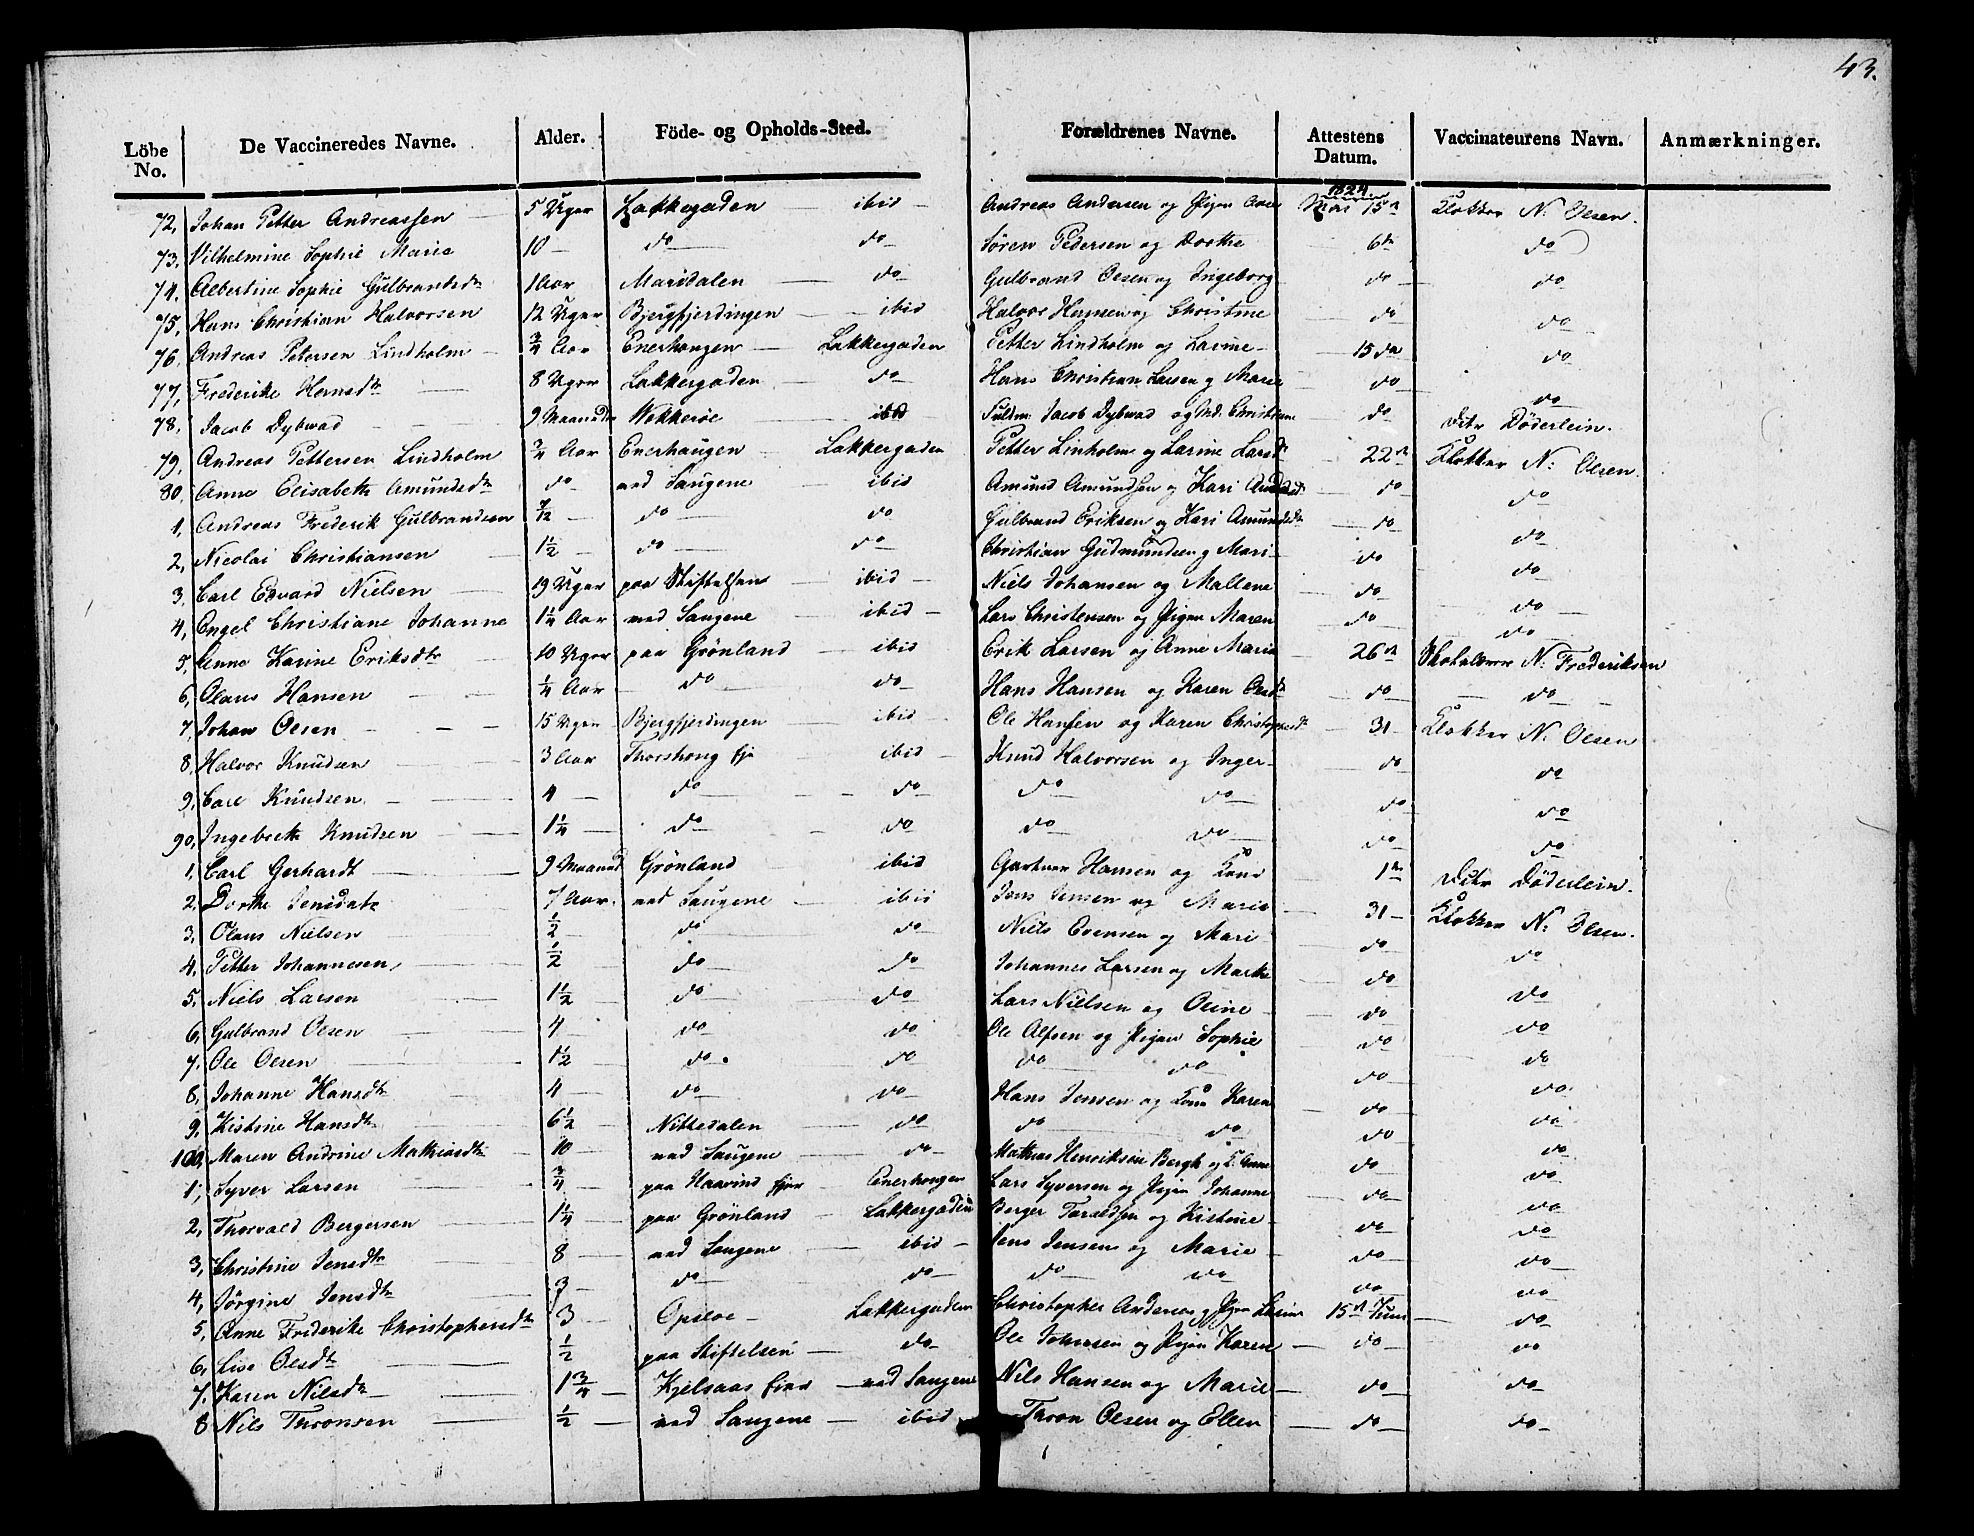 43.
Löbe No. De Vaccineredes Navne. Alder. Föde- og Opholds-Sted. Forældrenes Navne. Attestens Datum. Vaccinateurens Navn. Anmærkninger.
1824
72, Johan Petter Andreassen 5 Uger Lakkegaden ibid Andreas Andersen og Pigen Mai 15 Klokker N. Olsen.
73, Vilhelmine Sophie Marie 10 do do Søren Pedersen og Dorthe 6 do
74, Albertine Sophie Gulbrandsdtr 1 Aar Maridalen do Gulbrand Olsen og Ingeborg do do
75, Hans Christian Halvorsen 12 Uger Bjergfjerdingen ibid Halvor Hansen og Christine do do
76, Andreas Petersen Lindholm 3/4 Aar Enerhougen Lakkegaden Petter Lindholm og Larine 15 do
77, Frederike Hansdtr 8 Uger Lakkegaden do Hans Christian Larsen og Marie do do
78, Jacob Dybwad 9 Maaneder Nekkeröe ibid Fuldm. Jacob Dybwad og Md. Christiane do Döderlein.
79, Andreas Pettersen Lindholm 3/4 Aar Enerhaugen Lakkegaden Petter Linholm og Larine Larsdtr 22 Klokker N: Olsen
80, Anne Elisabeth Amundsdtr do ved Saugene ibid Amund Amundsen og Kari do do
1, Andreas Frederik Gulbrandsen 7/12 do do Gulbrand Eriksen og Kari Amundsdtr do do
2, Nicolai Christiansen 1 1/2 do do Christian Gudmundsen og Mari do do
3, Carl Edvard Nielsen 19 Uger paa Stiftelsen ibid Niels Johansen og Mallene do do
4, Engel Christiane Johanne 1 1/4 Aar ved Saugene ibid Lars Christensen og Pigen Maren do do
5, Anne Karine Eriksdtr 10 Uger paa Grönland ibid Erik Larsen og Anne Marie 26 N: Frederiksen
6, Olaus Hansen 1/4 Aar do do Hans Hansen og Karen do do
7, Johan Olsen 15 Uger Bjergfjerdingen ibid Ole Hansen og Karen Christophersdtr 31 Klokker N. Olsen
8, Halvor Knudsen 3 Aar Thorshoug ibid Knud Halvorsen og Inger do do
9, Carl Knudsen 4 do do do do do do
90, Ingebreth Knudsen 1 1/4 do do do do do do
1, Carl Gerhardt 9 Maaned Grönland ibid Gartner Hansen og Kone 1 Döderlein.
2, Dorthe Jensdatr 7 Aar ved Saugene ibid Jens Jensen og Marie 31 Klokker N: Olsen.
3, Olaus Nielsen 1/2 do do Niels Evensen og Mari do do
4, Petter Johannesen 1/2 do do Johannes Larsen og Marthe do do
5, Niels Larsen 1 1/2 do do Lars Nielsen og Oline do do
6, Gulbrand Olsen 4 do do Ole Olsen og Pigen Sophie do do
7, Ole Olsen 1 1/2 do do do do do do
8, Johanne Hansdtr 4 do do Hans Jensen og Kone Karen do do
9, Kistine Hansdtr 6 1/2 Nittedalen do do do do do
100, Maren Andrine Mathiasdtr 10 ved Saugene do Mathias Henriksen Bergh og K. Anne do do
1, Syver Larsen 3/4 paa Haavind Enerhougen Lars Syversen og Pigen Johanne do do
2, Thorvald Bergersen 1 1/4 paa Grönland Lakkegaden Berger Taraldsen og Kistine do do
3, Christine Jensdtr 8 ved Saugene ibid Jens Jensen og Marie do do
4, Jörgine Jensdtr 3 do do do do do do
5, Anne Frederike Christophersdtr 3 Opsloe Lakkegaden Christopher Andersen og Pigen Larine 15 Juni do
6, Lise Olsdtr 1/2 paa Stiftelsen do Ole Johnsen og Pigen Karen do do
7, Karen Nilsdtr 1 3/4 Kjelsaas ved Saugene Nils Hansen og Marie do do
8 Nils Thronsen 1/2 ved Saugene ibid Thron Olsen og Ellen do do